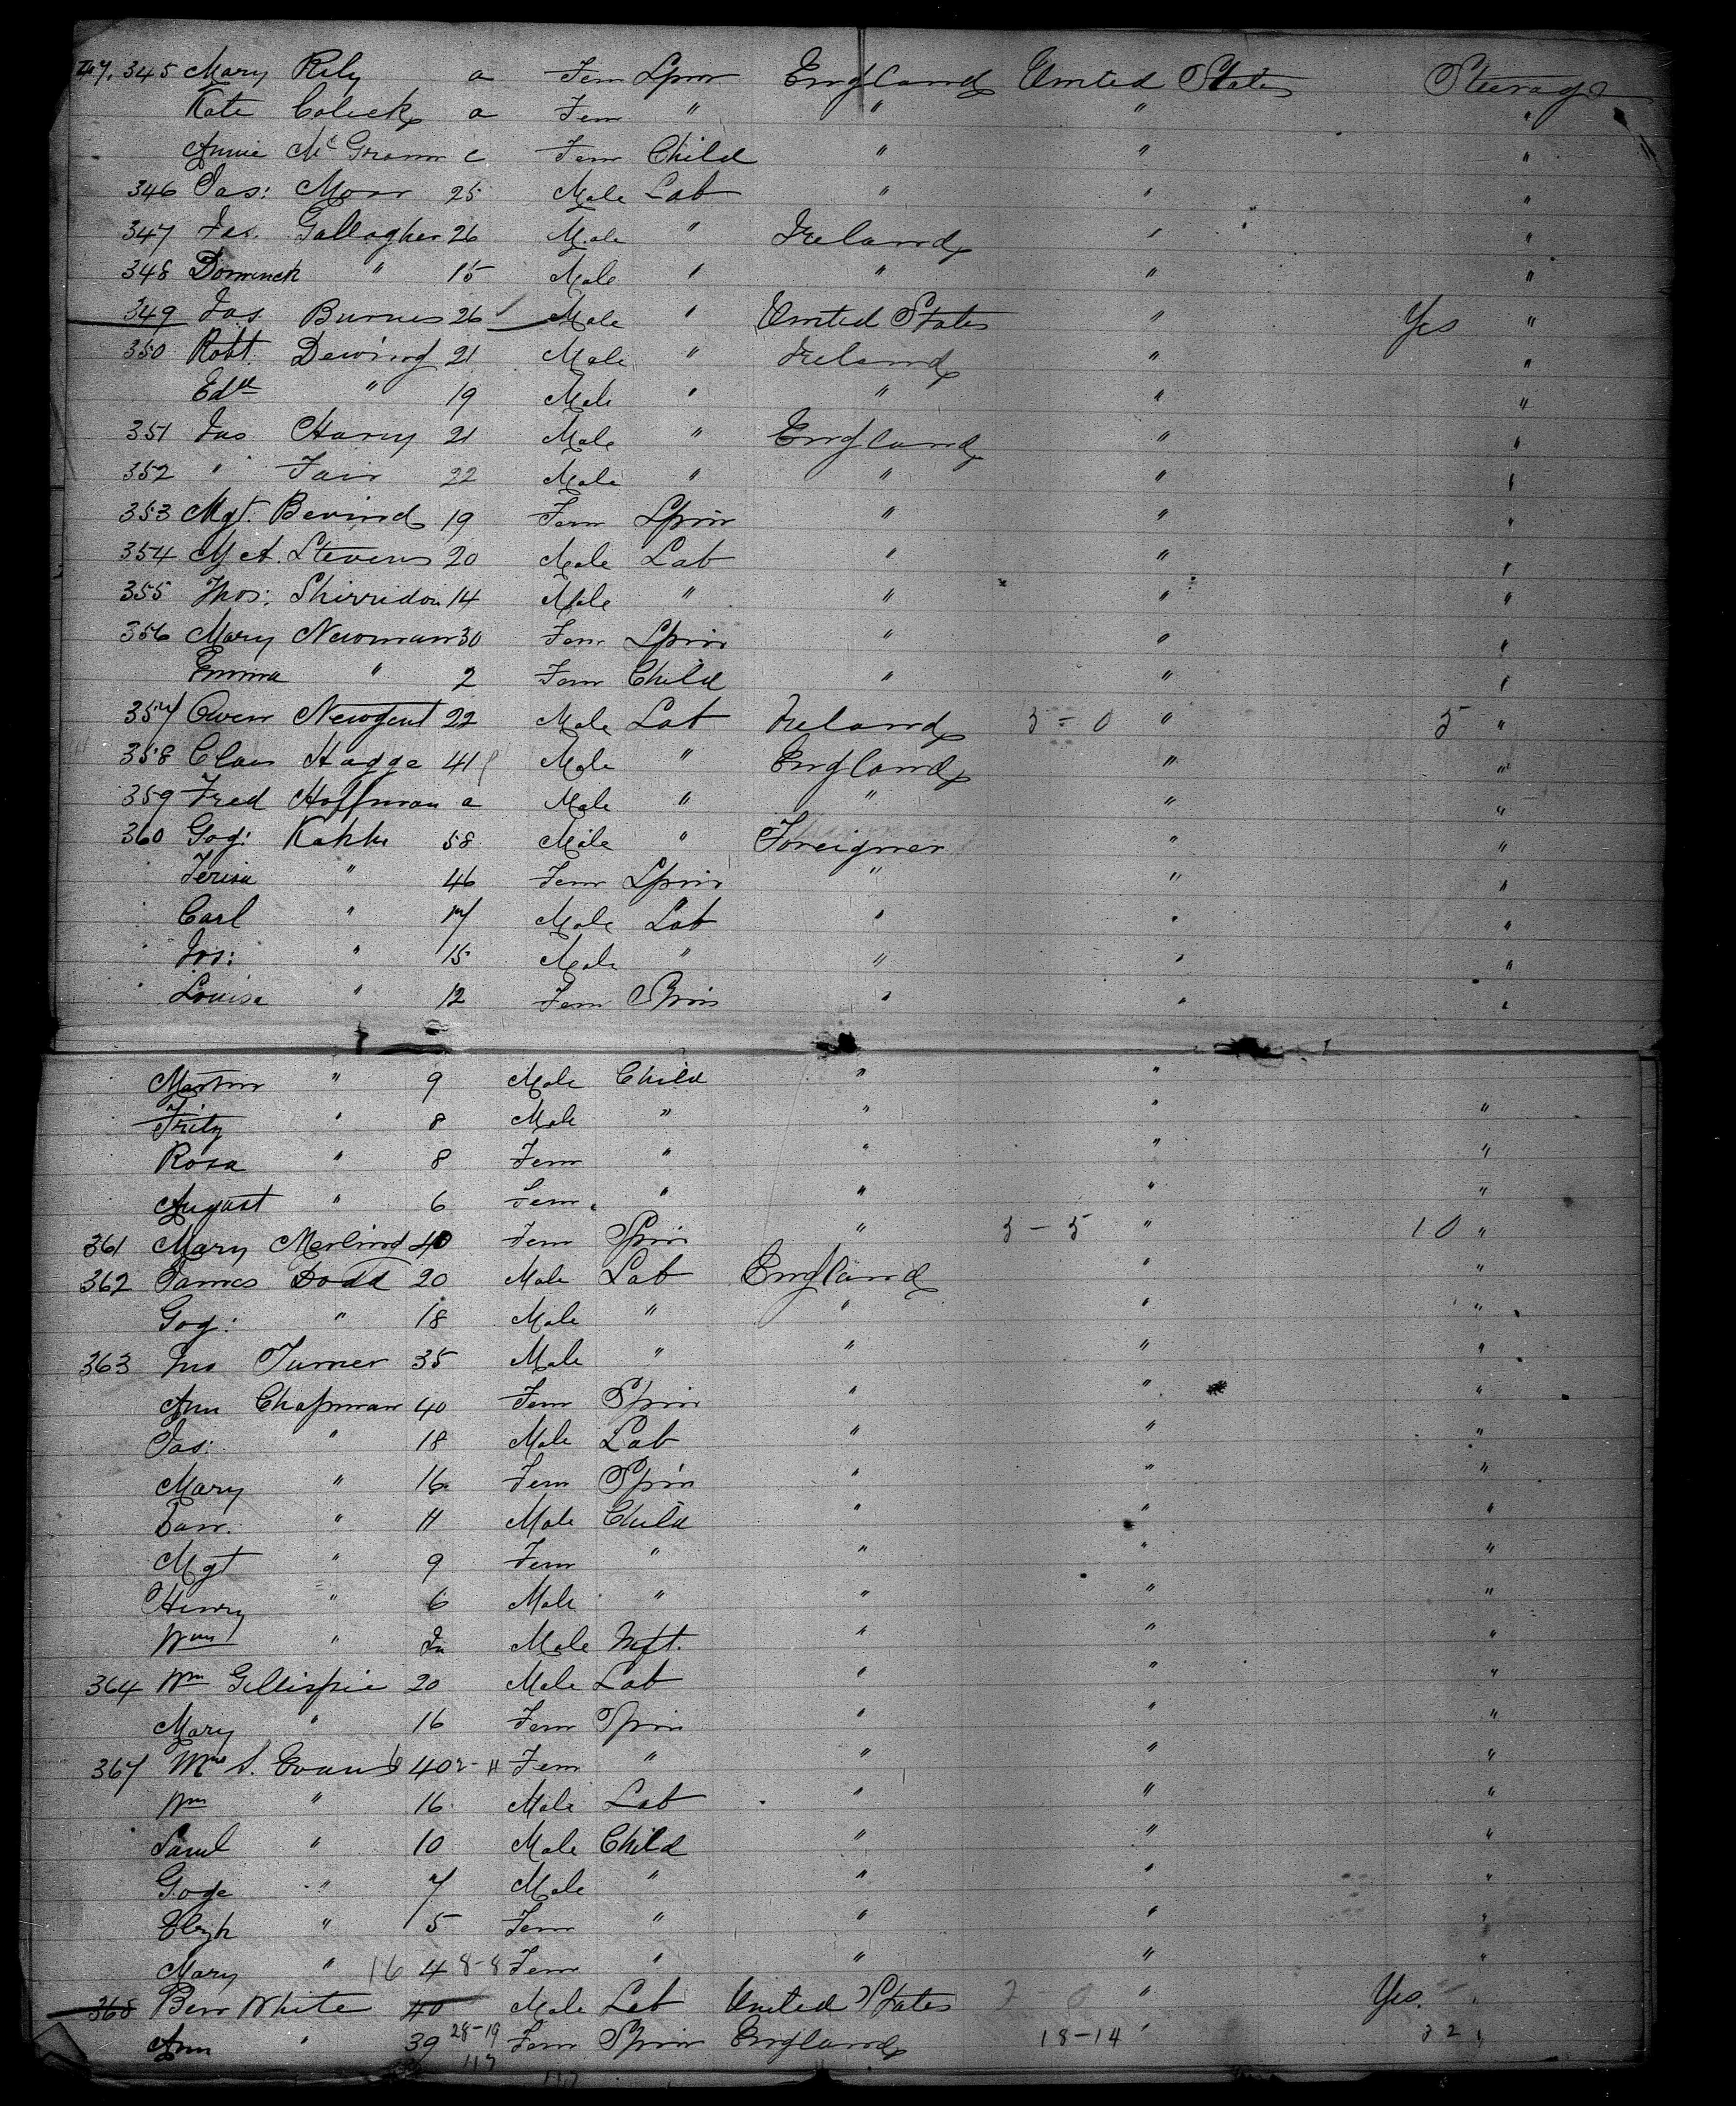 345 Mary Rily a Fem Spin England United States Steerage
Kate Colick a Fem " " " "
Annie McGrann c Fem Child " " "
346 Jas: Moor 25 Male Lab " " "
347 Jas. Gallagher 26 Male " Ireland " "
348 Dominick " 15 Male " " " "
349 Jas. Burnes 26 Male " United States " Yes "
350 Robt. Dewing 21 Male " Ireland " "
Edd " 19 Male " " " "
351 Jas Harvy 21 Male " England " "
352 " Fair 22 Male " " " "
353 Mgt. Bevind 19 Fem Spin " " "
354 M A. Stevens 20 Male Lab " " "
355 Thos: Shirridon 14 Male " " " "
356 Mary Newman 30 Fem Spin " " "
Emma " 2 Fem Child " " "
357 Owen Newgent 22 Male Lab Ireland 5 - 0 " 5 "
358 Claus Hagge 41 Male " England " "
359 Fred Hoffman a Male " " " "
360 Gog: Kahke 58 Male " Foreigner " "
Terisa " 46 Fem Spin " " "
Carl " 17 Male Lab " " "
Jos: " 15 Male " " " "
Louisa " 12 Fem Spin " " "
Martin " 9 Male Child " "
Fritz " 8 Male " " " "
Rosa " 8 Fem " " " "
August " 6 Fem. " " " "
361 Mary Merlind 40 Fem Spin " 5 - 5 " 10 "
362 James Dodd 20 Male Lab England " "
Gog: " 18 Male " " " "
363 Jno Turner 35 Male " " " "
Ann Chapman 40 Fem Spin " " "
Jas: " 18 Male Lab " " "
Mary " 16 Fem Spin " " "
" 11 Male Child " " "
Mgt " 9 Fem " " " "
Henry " 6 Male " " " "
Wm " In Male Inft. " " "
364 Wm Gillispie 20 Male Lab " " "
Mary " 16 Fem Spin " " "
367 Mrs S. Evans 40 2-11 Fem " " " "
Wm " 16 Male Lab " " "
Saml " 10 Male Child " " "
Goge " 7 Male " " " "
Elizh " 5 Fem " " " "
Mary " 16 4 8-8 Fem " " " "
368 Ben White 40 Male Lab United States " Yes. "
Ann " 39 28-19 Fem Spin England 18-14 " 32 "